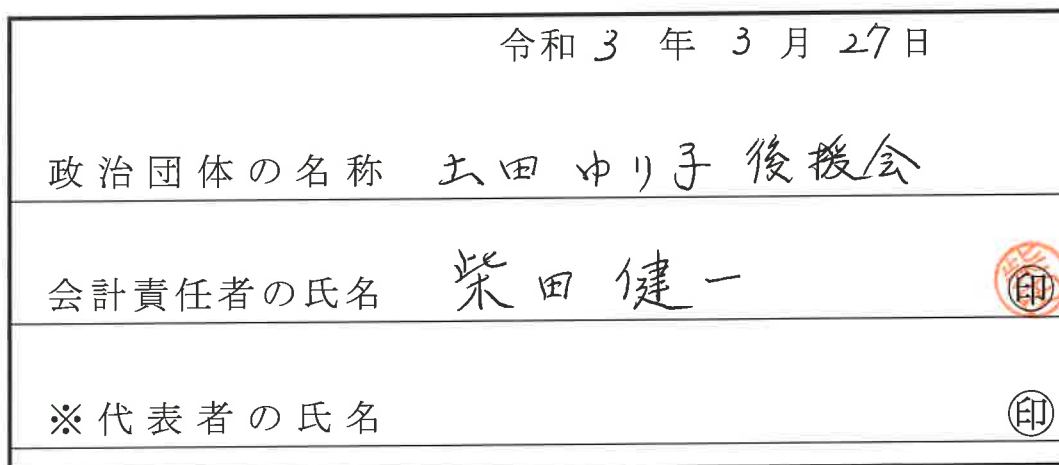 令和 3 年 3 月 27日
政治団体の名称 土田 ゆり子 後援会
会計責任者の氏名 柴田 健一 ㊞
※代表者の氏名 ㊞